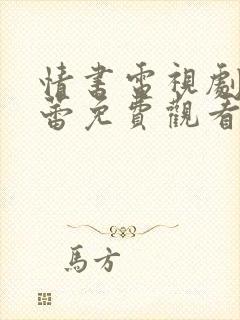 情書電視劇
蕾免費觀看
馬方